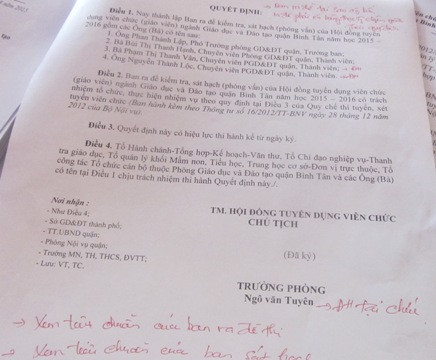 QUYẾT ĐỊNH:
Điều 1. Nay thành lập Ban ra đề kiểm tra, sát hạch (phỏng vấn) của Hội đồng tuyển
dụng viên chức (giáo viên) ngành Giáo dục và Đào tạo quận Bình Tân năm học 2015 –
2016 gồm các Ông (Bà) có tên sau:
1. Ông Phan Thành Lập, Phó Trưởng phòng GD&ĐT quận, Trưởng ban;
2. Bà Bùi Thị Thanh Hạnh, Chuyên viên Phòng GD&ĐT quận, Thành viên;
3. Bà Phạm Thị Thanh Vân, Chuyên viên PGD&ĐT quận, Thành viên;
4. Ông Nguyễn Thành Lộc, Chuyên viên PGD&ĐT quận, Thành viên.
Điều 2. Ban ra đề kiểm tra, sát hạch (phỏng vấn) của Hội đồng tuyển dụng viên chức
(giáo viên) ngành Giáo dục và Đào tạo quận Bình Tân năm học 2015 – 2016 có trách
nhiệm tổ chức, thực hiện nhiệm vụ theo quy định tại Điều 3 của Quy chế thi tuyển, xét
tuyển viên chức (Ban hành kèm theo Thông tư số 16/2012/TT-BNV ngày 28 tháng 12 năm
2012 của Bộ Nội vụ).
Điều 3. Quyết định này có hiệu lực thi hành kể từ ngày ký.
Điều 4. Tổ Hành chánh-Tổng hợp-Kế hoạch-Văn thư, Tổ Chỉ đạo nghiệp vụ-Thanh
tra giáo dục, Tổ quản lý khối Mầm non, Tiểu học, Trung học cơ sở-Đơn vị trực thuộc, Tổ
công tác Tổ chức cán bộ thuộc Phòng Giáo dục và Đào tạo quận Bình Tân và các Ông (Bà)
có tên tại Điều 1 chịu trách nhiệm thi hành Quyết định này./.
Nơi nhận :
- Như Điều 4;
- Sở GD&ĐT thành phố;
- TT.UBND quận;
- Phòng Nội vụ quận;
- Trường MN, TH, THCS, ĐVTT;
- Lưu: VT, TC.
TM. HỘI ĐỒNG TUYỂN DỤNG VIÊN CHỨC
CHỦ TỊCH
(Đã ký)
TRƯỞNG PHÒNG
Ngô văn Tuyên
→ Xem tiêu chuẩn của ban ra đề thi
→ Xem tiêu chuẩn của ban sát hạch